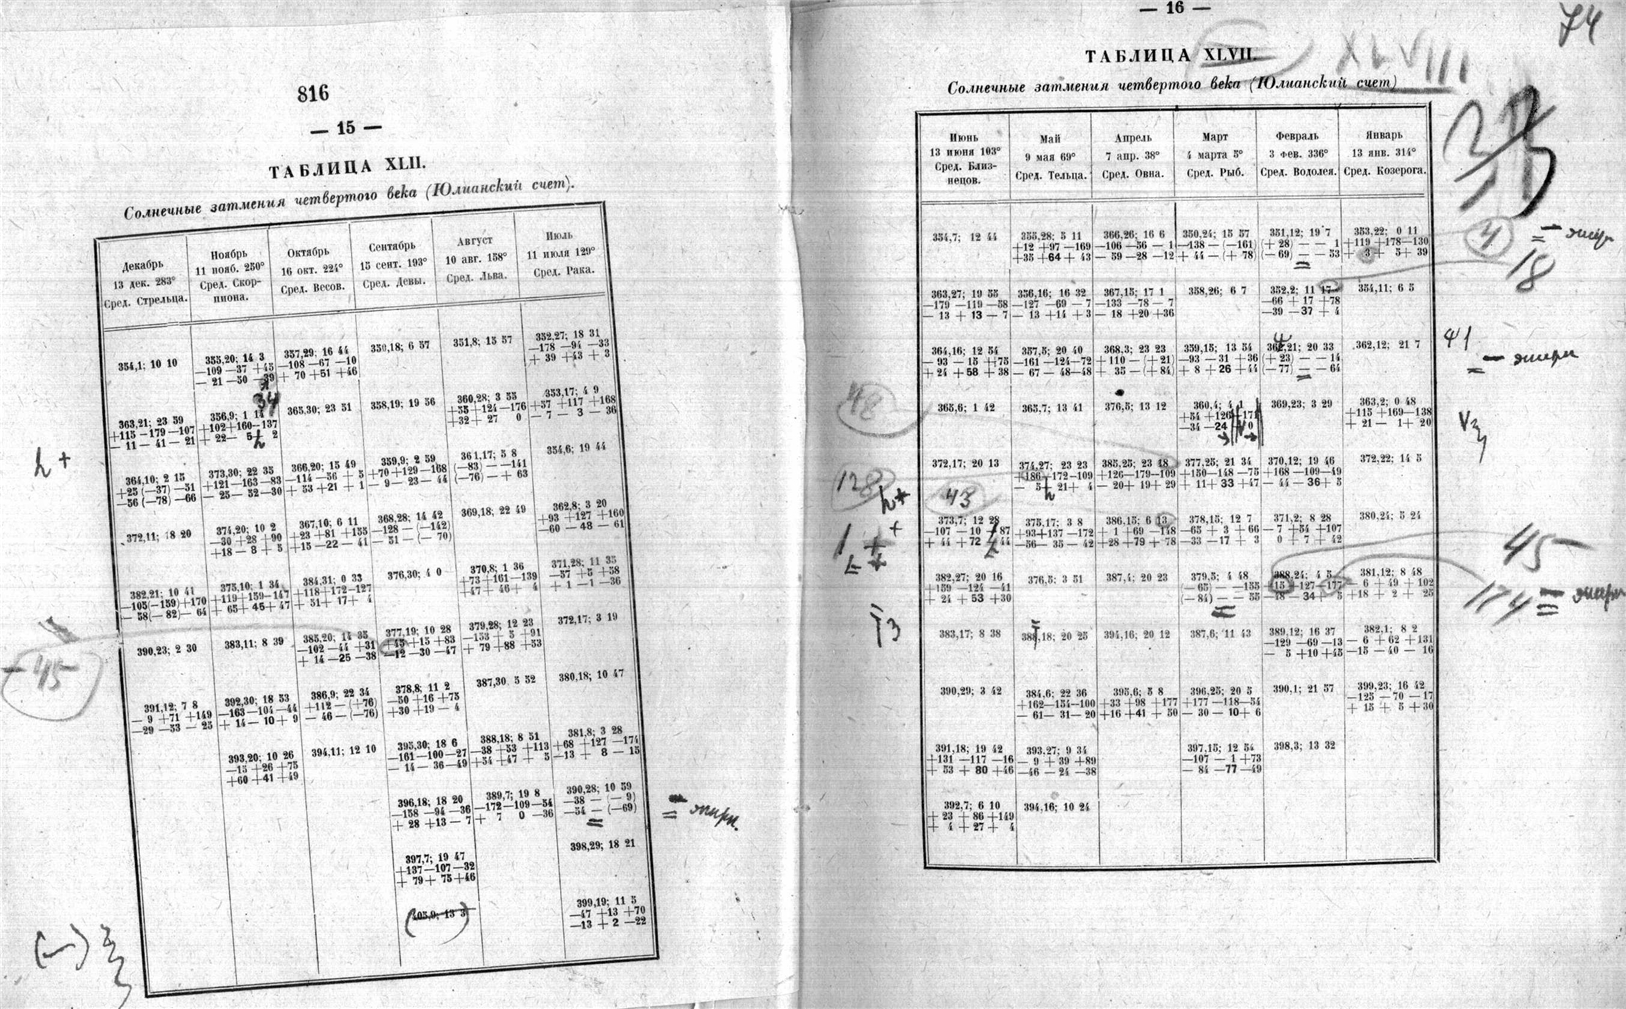 816
— 15 —
ТАБЛИЦА XLII.
Солнечные затмения четвертого века (Юлианский счет).
Декабрь
13 дек. 283°
Сред. Стрельца.
Ноябрь
11 нояб. 250°
Сред. Скор-
пиона.
Октябрь
16 окт. 224°
Сред. Весов.
Сентябрь
15 сент. 193°
Сред. Девы.
Август
10 авг. 158°
Сред. Льва.
Июль
11 июля 129°
Сред. Рака.
354,1; 10 10
363,21; 23 59
+115 —179 —107
— 11 — 41 — 21
364,10; 2 15
+25 (—37) —51
—56 (—78) —66
372,11; 18 20
382,21; 10 41
—105(—159)+170
— 58(— 82)— 64
390,23; 2 30
391,12; 7 8
— 9 +71 +149
—29 —53 — 25
355,20; 14 3
—109 —37 +45
— 21 —50 —39
34
356,9; 1 14
+102+160—137
+ 22— 5 2
373,30; 22 35
+121—163—83
— 25— 52—30
374,20; 10 2
—30 +28 +90
+18 — 8 + 5
375,10; 1 34
+119+159—147
+ 65+ 45+ 47
383,11; 8 39
392,30; 18 53
—163—104—44
+ 14— 10+ 9
393,20; 10 26
—15 +26 +75
+60 +41 +49
357,29; 16 44
—108 —67 —10
+ 70 +51 +46
365,30; 23 51
366,20; 15 49
—114 —56 + 5
+ 53 +21 + 1
367,10; 6 11
+23 +81 +155
+15 —22 — 41
384,31; 0 33
+118+172—127
+ 51+ 17+ 4
385,20; 14 35
—102 —44 +31
+ 14 —25 —38
386,9; 22 34
+112 — (+76)
— 46 — (—76)
394,11; 12 10
350,18; 6 57
358,19; 19 56
359,9; 2 59
+70 +129 —168
— 9 —23 — 44
368,28; 14 42
—128 — (—142)
— 51 — (— 70)
376,30; 4 0
377,19; 10 28
—45 +15 +83
—12 —30 —47
378,8; 11 2
—50 +16 +75
+30 +19 — 4
395,30; 18 6
—161—100—27
— 14— 36—49
396,18; 18 20
—158 —94 —36
+ 28 +13 — 7
397,7; 19 47
+137—107—32
+ 79+ 75+46
351,8; 15 57
360,28; 3 55
+55 +124 —176
+32 + 27 0
361,17; 5 8
(—83) — —141
(—76) — + 63
369,18; 22 49
370,8; 1 36
+73 +161—139
+47 + 46+ 4
379,28; 12 23
—153 + 5 +91
+ 79 +88 +53
387,30; 5 52
388,18; 8 51
—38 +53 +113
+54 +47 + 5
389,7; 19 8
—172—109—54
+ 7 0 —36
352,27; 18 31
—178 —94 —33
+ 39 +43 + 3
353,17; 4 9
+57 +117 +168
— 7 — 3 — 36
354,6; 19 44
362,8; 3 20
+93 +127 +160
—60 — 48 — 61
371,28; 11 35
—57 + 5 +58
+ 1 —1 —36
372,17; 3 19
380,18; 10 47
381,8; 3 28
+68 +127 —174
—13 + 8 — 15
390,28; 10 59
—38 — (— 9)
—54 — (—69)
398,29; 18 21
399,19; 11 5
—47 +13 +70
—13 + 2 —22
—45
h +
(—)
— 16 —
74
ТАБЛИЦА XLVII.
XLVIII
Солнечные затмения четвертого века (Юлианский счет)
Июнь
13 июня 103°
Сред. Близ-
нецов.
Май
9 мая 69°
Сред. Тельца.
Апрель
7 апр. 38°
Сред. Овна.
Март
4 марта 5°
Сред. Рыб.
Февраль
3 фев. 336°
Сред. Водолея.
Январь
13 янв. 314°
Сред. Козерога.
354,7; 12 44
363,27; 19 55
—179 —119 —58
— 13 + 13 — 7
364,16; 12 54
— 93 — 15 +75
+ 24 + 58 + 38
365,6; 1 42
372,17; 20 13
373,7; 12 28
—107 —10 + 87
+ 44 + 72 + 44
382,27; 20 16
+159 —124 —41
+ 24 + 53 +30
383,17; 8 38
390,29; 3 42
391,18; 19 42
+131 —117 —16
+ 53 + 80 +46
392,7; 6 10
+ 23 + 86 +149
+ 4 + 27 + 4
355,28; 5 11
+12 +97 —169
+35 +64 + 43
356,16; 16 32
—127 —69 — 7
— 13 +14 + 3
357,5; 20 40
—161 —124—72
— 67 — 48—48
365,7; 13 41
374,27; 23 23
+186+172—109
— 5 21+ 4
375,17; 3 8
+93+137 —172
—56— 35 — 42
376,5; 3 51
384,18; 20 25
384,6; 22 36
+162—154—100
— 61— 31—20
393,27; 9 34
— 9 + 39 +89
—46 — 24 —38
394,16; 10 24
366,26; 16 6
—106 —56 — 1
— 59 —28 —12
367,15; 17 1
—133 —78 — 7
— 18 +20 +36
368,3; 23 23
+110 — (+21)
+ 35 — (+84)
376,5; 13 12
385,25; 23 18
+126—179—109
— 20+ 19+ 29
386,15; 6 13
+ 1 +69 —148
+28 +79 + 78
387,4; 20 23
394,16; 20 12
395,6; 5 8
+33 +98 +177
+16 +41 + 50
350,24; 15 57
—138 — (—161)
+ 44 — (+ 78)
358,26; 6 7
359,15; 13 54
— 93 — 31 + 36
+ 8 + 26 + 44
360,4; 4 1
+54 +126 +171
—34 —24 0
377,25; 21 34
+150 —148 —75
+ 11+ 33 +47
378,15; 12 7
—65 + 3 +66
—33 —17 + 3
379,5; 4 48
(— 65) — —155
(— 84) — — 55
387,6; 11 43
396,25; 20 5
+177 —118—54
— 30 — 10+ 6
397,15; 12 54
—107 — 1 +73
— 84 —77 —49
351,12; 19 7
(+ 28) — — 1
(— 69) — — 53
352,2; 11 17
—66 + 17 +78
—39 —37 + 4
362,21; 20 33
(+ 23) — — 14
(—77) — — 64
369,23; 3 29
370,12; 19 46
—168 —109 —49
— 44 — 36+ 5
371,2; 8 28
— 7 +54 +107
0 + 7 + 42
388,24; 4 5
15 +127 —177
—18 —34 + 5
389,12; 16 37
—129 —69 —13
— 5 +10 +45
390,1; 21 57
398,3; 13 32
353,22; 0 11
+119 +178—130
+ 3+ 5+ 39
354,11; 6 5
362,12; 21 7
363,2; 0 48
+115 +169—138
+ 21— 1+ 20
372,22; 14 5
380,24; 5 24
381,12; 8 48
— 6 +49 +102
+18 + 2 + 25
382,1; 8 2
— 6 +62 +131
—15 —40 — 16
399,23; 16 42
—125 —70 —17
+ 15 + 5 +30
4
18
48
128
43
45
174